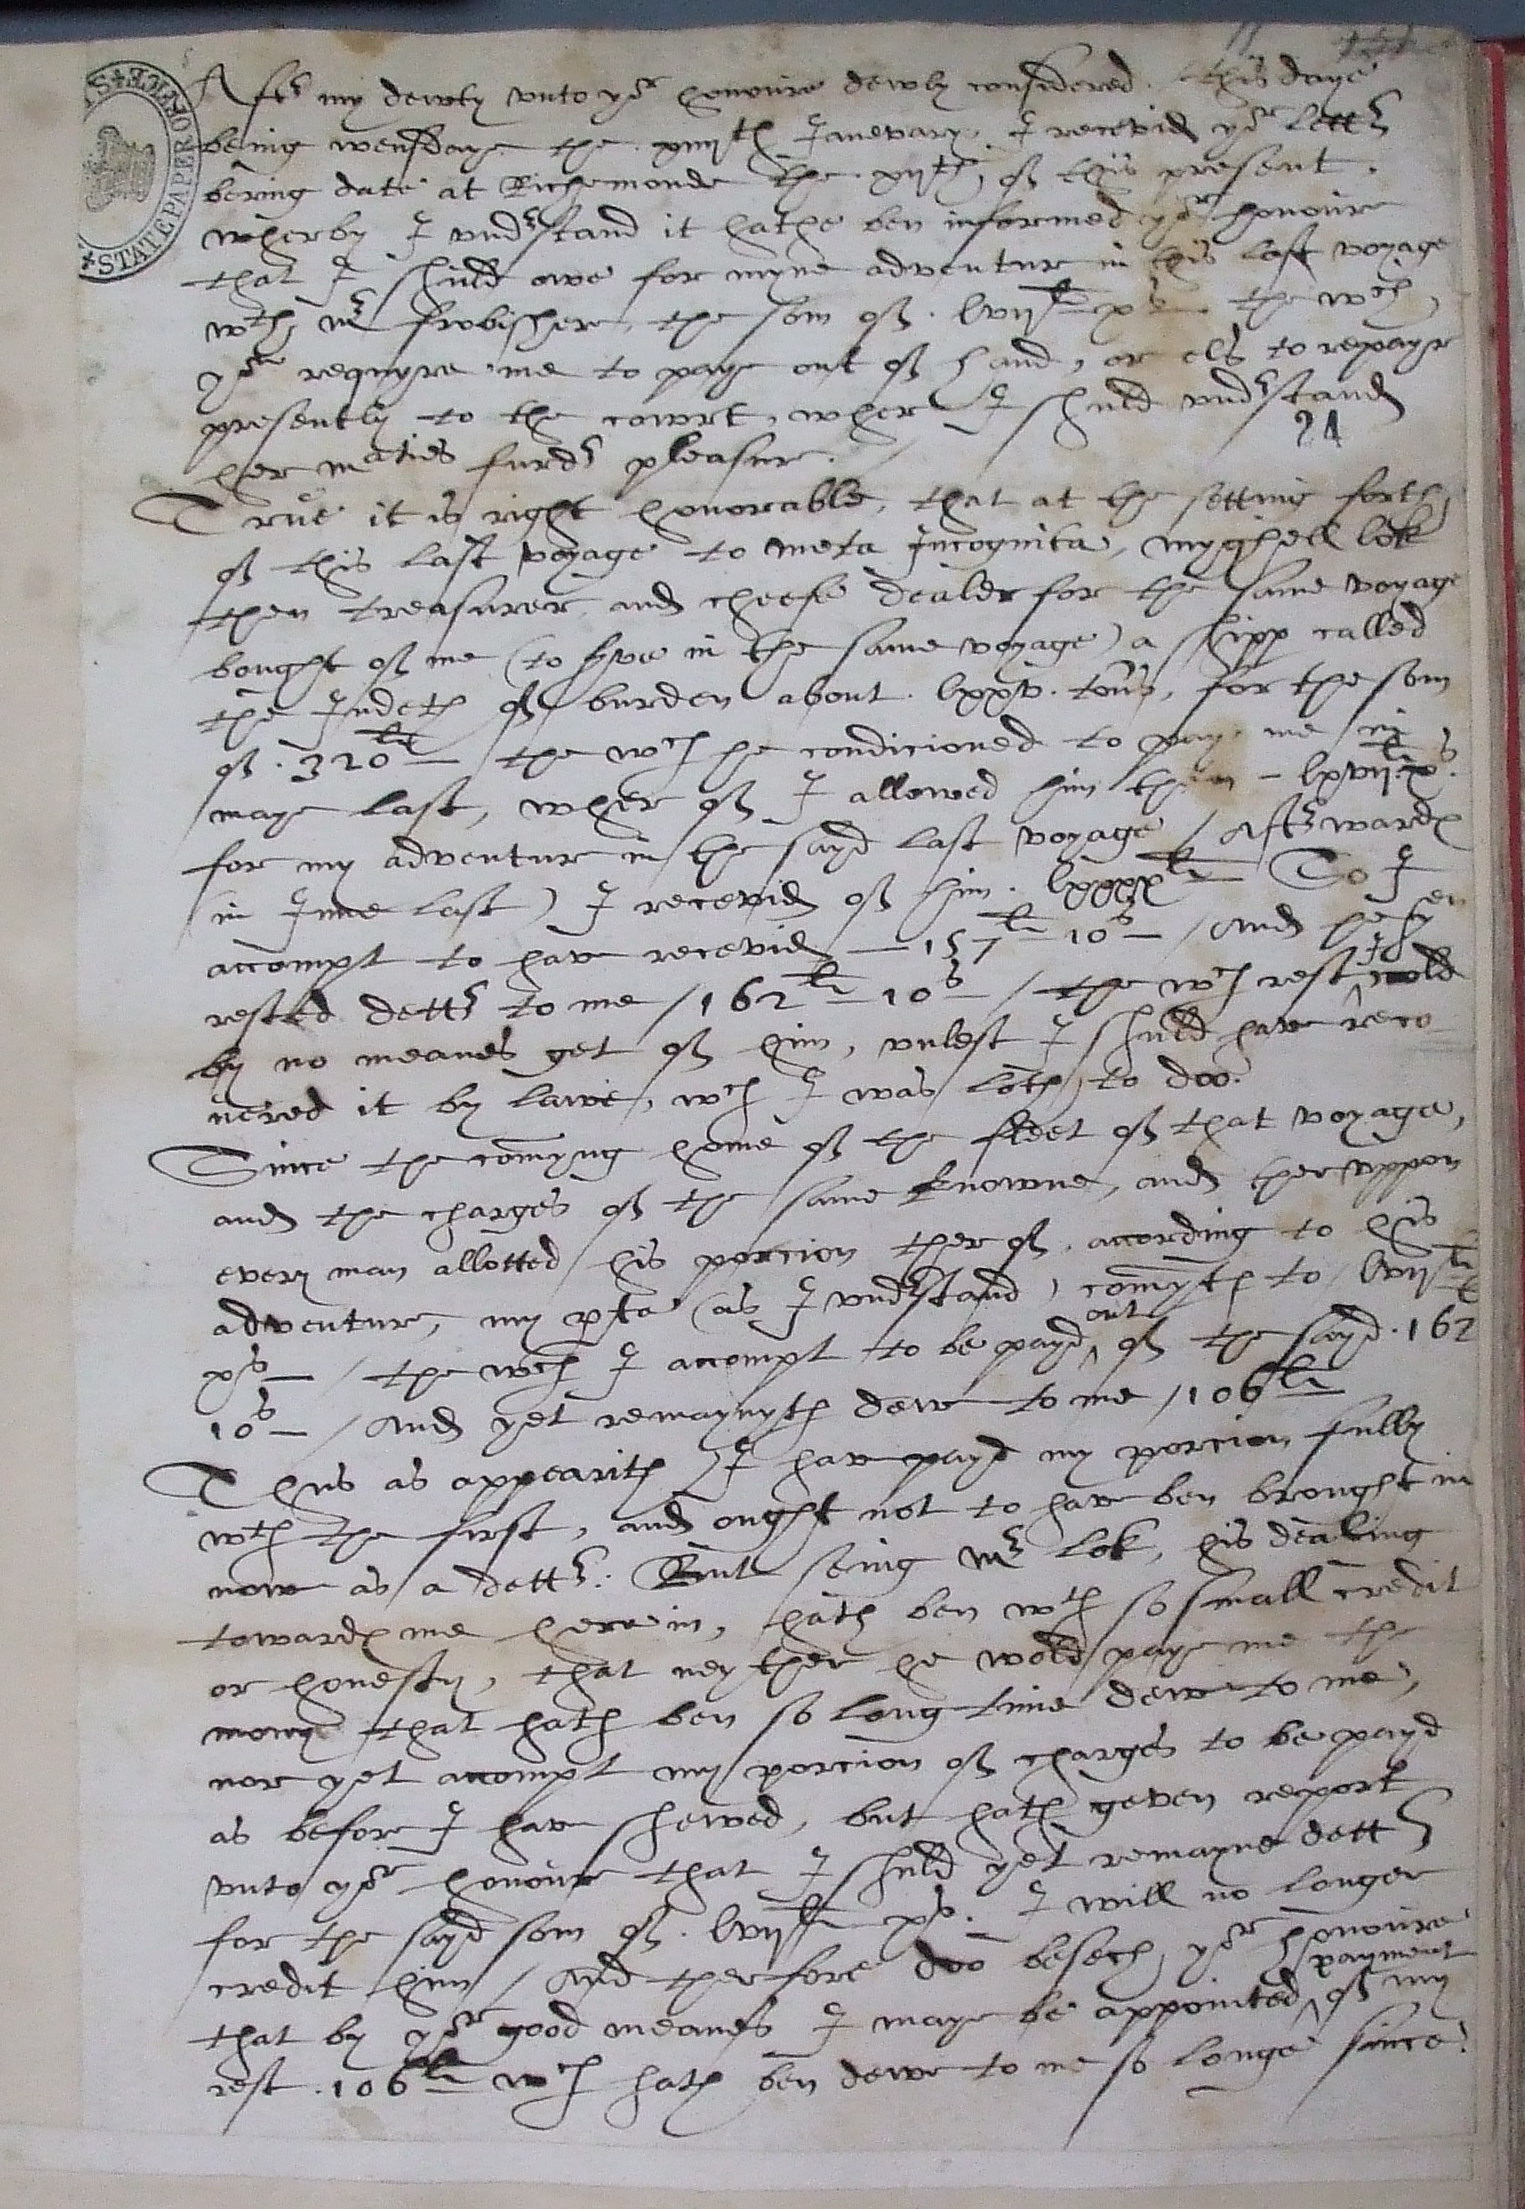 STATE PAPER OFFICE
Aftr my dewty vnto yor honoure dewly considered. this daye
being wensdaye the xiiijth Janevary. I recevid yor lettrs
bering date at Richemonde the xijth of this present.
wherby I vndrstand it hathe ben informed yor honoure
that I shuld owe for myne adventure in this last voyage
wth mr frobisher, the som of . lvjli xs the wch,
yor requyre me to paye out of hand, or els to repayr
presently to the cowrt, wher I shuld vndrstand
her maties furdr pleasure.
24
True it is right honorable, that at the setting forth
of this last voyage to meta Incognita, myghell lok
then treasurer and cheefe dealer for the same voyage
bought of me (to srve in the same voyage) a shipp called
the Judeth of burden about . lxxv. tons, for the som
of . 320li the wch he condicioned to pay me in
maye last, wher of I allowed him then - lxvijli xs.
for my adventure in the sayd last voyage / Aftrwardes
in June last) I recevid of him . lxxxxli So I
accompt to have recevid — 157li 10s — / And he then
rested dettr to me / 162li 10s — / the wch rest I cold
by no meanes get of him, vnlest I shuld have reco
vered it by lawe, wch I was loth to doo.
Since the comyng home of the fleet of that voyage,
and the charges of the same knowne, and ther vppon
every man allotted his porcion ther of, according to his
adventure, my pte (as I vndrstand) comyth to / lvjli
xs — / the wch I accompt to be payd out of the sayd . 162li
10s — / And yet remaynyth dew to me / 106li
Thus as appearith I have payd my porcion fully
wth the first, and ought not to have ben brought in
now as a dettr. But seing mr lok, his dealing
towardes me here in, hath ben wth so small credit
or honesty, that neyther he wold paye me the
mony that hath ben so long time dew to me,
nor yet accompt my porcion of charges to be payd
as before I have shewed, but hath geven report
vnto yor honour that I shuld yet remayne dettr
for the sayd som of . lvjli xs. I will no longer
credit him / And therfore doo besech yor honoure
that by yor good meanes I maye be appointed payment of my
rest . 106li wch hath ben dewe to me so longe since.